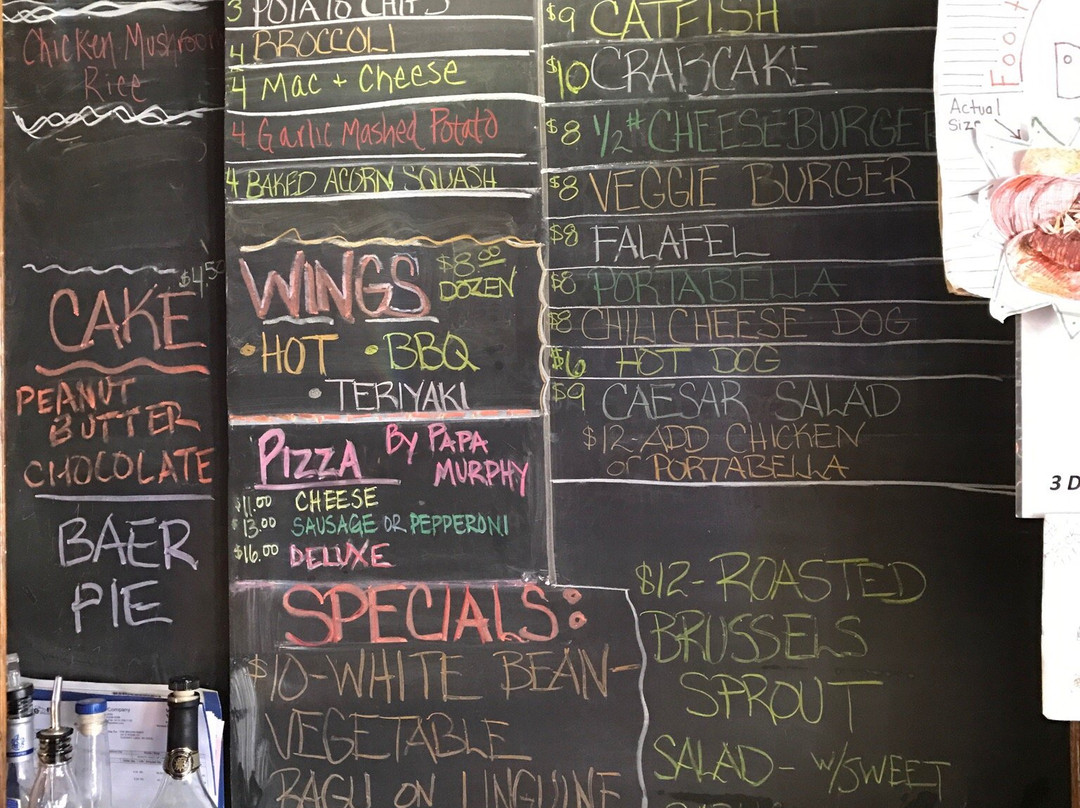 Chicken Mushroom
Rice
$4.50
CAKE
PEANUT
BUTTER
CHOCOLATE
BAER
PIE
3 POTATO CHIPS
4 BROCCOLI
4 Mac + Cheese
4 Garlic Mashed Potato
4 BAKED ACORN SQUASH
WINGS $8.00 DOZEN
• HOT • BBQ
• TERIYAKI
PIZZA BY PAPA MURPHY
$11.00 CHEESE
$13.00 SAUSAGE OR PEPPERONI
$16.00 DELUXE
SPECIALS:
$10-WHITE BEAN-
VEGETABLE
RAGU ON LINGUINE
$9 CATFISH
$10 CRABCAKE
$8 1/2 # CHEESEBURGER
$8 VEGGIE BURGER
$8 FALAFEL
$8 PORTABELLA
$8 CHILI CHEESE DOG
$6 HOT DOG
$9 CAESAR SALAD
$12-ADD CHICKEN
or PORTABELLA
$12-ROASTED
BRUSSELS
SPROUT
SALAD- W/SWEET
Actual
Size
3 D
Company